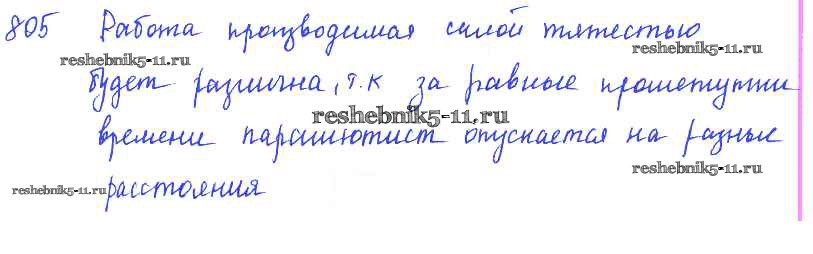 805 Работа производимая силой тяжестью
reshebnik5-11.ru reshebnik5-11.ru
будет различна, т.к за равные промежутки
reshebnik5-11.ru
времени парашютист опускается на разные
reshebnik5-11.ru
reshebnik5-11.ru расстояния